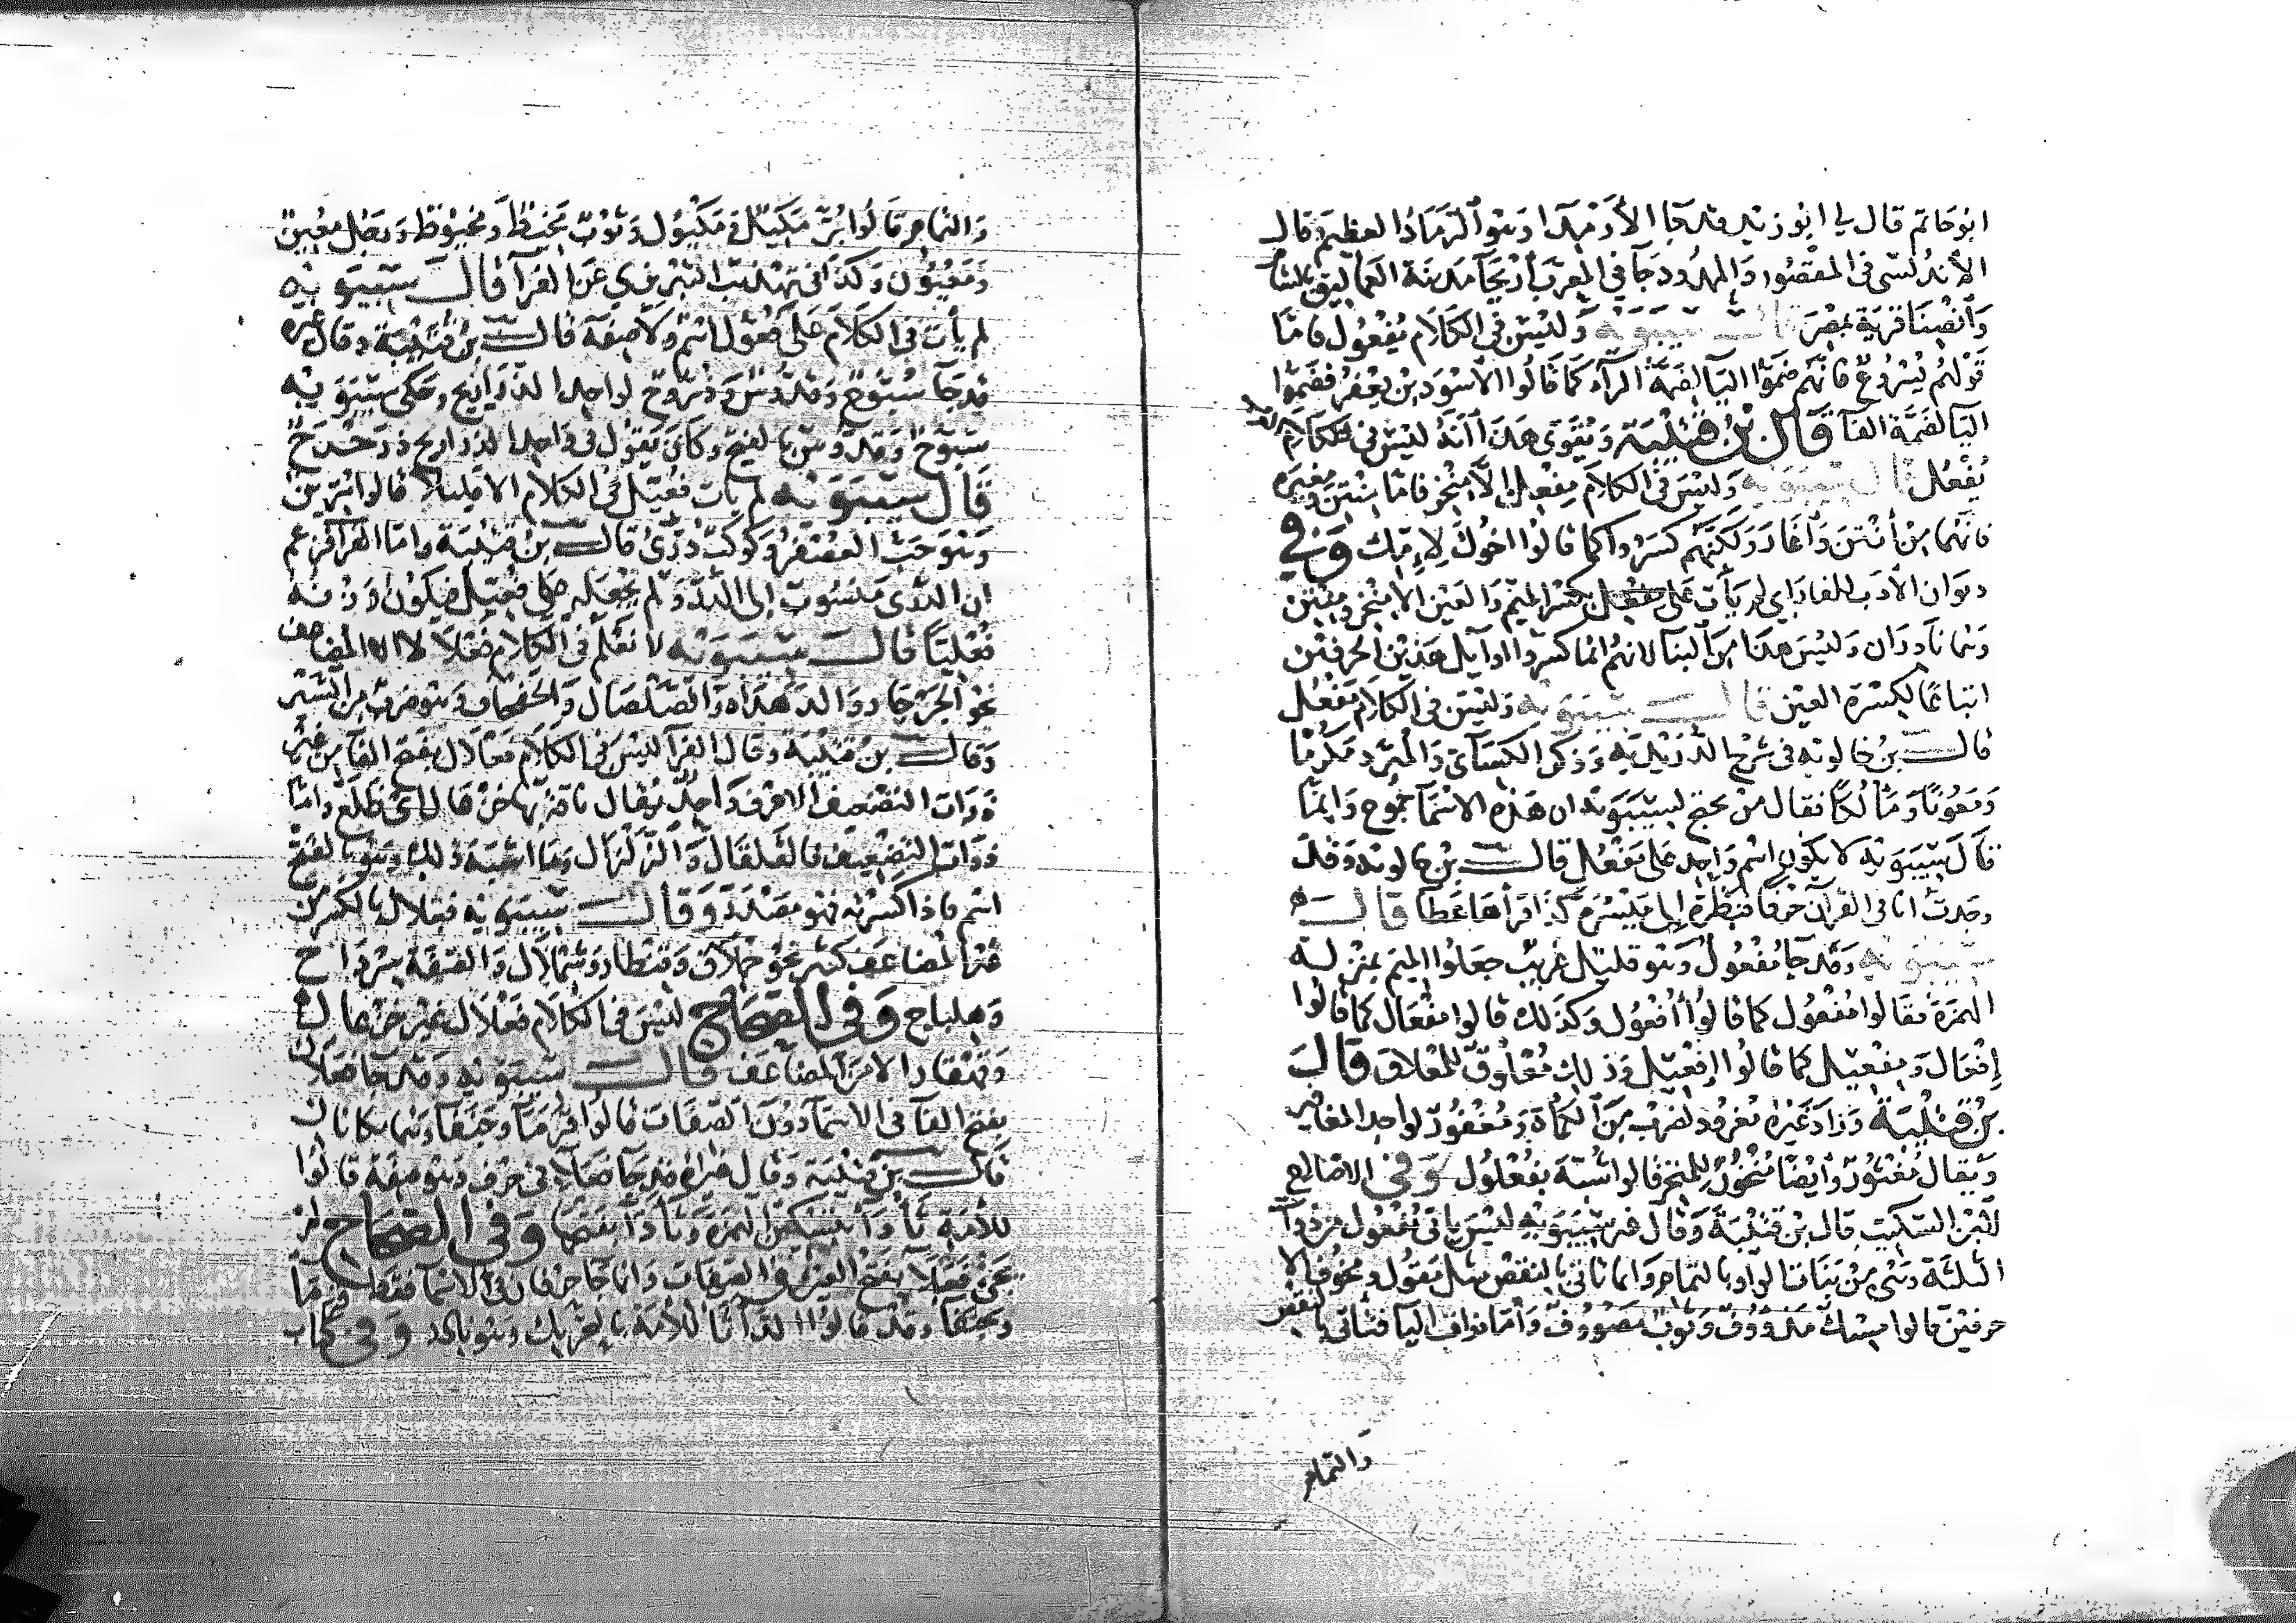 ابو حاتم قال لي ابو زيد قد جا الأرمداء وهو الرماد العظيم وقال
الأندلسي في المقصور والممدود جآ في المعرب أريحآ مدينة العماليق بالشام
وأنصنا قرية بمصر قال سيبويه وليس في الكلام يُفعول فاما
قولهم يُسروع فانهم ضموا اليا لضمة الرآء كما قالوا الاسود بن يعفر فضموا
اليا لضمة الفا قال بن قتيبة ويقوي هذا أنه ليس في كلام العرب
يُفعل قال سيبويه وليس في الكلام مِفعِل إلا مِنخر فاما مِنتن ومِغيره
فانهما من أنتن وأغار ولكنهم كسروا كما قالوا اخوك لإمك وفي
ديوان الأدب للفارابي لم يأت على مفعل بكسر الميم والعين الا منخر ومنتن
وهما نادران وليس هذا من البنا لانهم انما كسروا اوايل هذين الحرفين
اتباعا لكسرة العين قال سيبويه وليس في الكلام مفعل
قال بن خالويه في شرح الدريدية وذكر الكسآئ والمبرد مكرما
ومعونا ومألكا فقال من يحتج لسيبويه ان هذه الاسمآ جموع وانما
قال سيبويه لا يكون اسم واحد على مفعل قال بن خالويه وقد
وجدت انا في القرآن حرفا فنظرة إلى ميسره كذا قرأها عطا قال
سيبويه وقد جآ مُفعول وهو قليل غريب جعلوا الميم بمنزلة
الهمزة فقالوا مُفعول كما قالوا أُفعول وكذلك قالوا مفعال كما قالوا
إفعال ومِفعيل كما قالوا إفعيل وذلك مُعلوق للمعلاق قال
بن قتيبة وزاد غيره مغرود لضرب من الكمأة ومُغفور لواحد المغافير
ويقال مُغثور وأيضا مُنخور للمنخر قالوا شُبّه بفُعلول وفي الاصلاح
لابن السكيت قال بن قتيبة وقال غير سيبويه ليس ياتي مفعول من ذوات
الثلثة وهي من بنات الواو بالتمام وانما تاتي بالنقص مثل مقول ومخوف الا
حرفين قالوا مسك مدووف وثوب مصووف وأما ذوات اليا فتاتي بالنقص
والتمام
والتمام قالوا بُرّ مكيل ومكيول وثوب مخيط ومخيوط ورجل معين
ومعيون وكذا في تهذيب التبريزي عن الفرآ قال سيبويه
لم يأت في الكلام على فُعول اسم ولا صفة قال بن قتيبة وقال غيره
قد جآ سُبوح وقدوس وذروح لواحد الذراريح وحكى سيبويه
سبوح وقدوس بالفتح وكان يقول في واحد الذراريح ذرحرح
قال سيبويه لم يات فُعيل في الكلام الا قليلا قالوا مريق
وهو حب العصفر وكوكب دُرّي قال بن قتيبة واما الفرا فزعم
ان الدري منسوب إلى الدر ولم يجعله على فعيل فيكون وزنه
فعليا قال سيبويه لا نعلم في الكلام فعلالا الا المضاعف
نحو الجرجار والدهداه والصلصال والحقحاق وهو ضرب من السير
وقال بن قتيبة وقال الفرآ ليس في الكلام فعلال بفتح الفآ من غير
ذوات التضعيف الا حرف واحد يقال ناقة بها خزعال اي ظلع واما
ذوات التضعيف فالقلقال والزلزال وما اشبه ذلك وهو بالفتح
اسم فاذا كسرته فهو مصدر وقال سيبويه فعلال بالكسر من
غير المضاعف كثير نحو حملاق وقنطار وشملال والصفة سرداح
وهلباج وفي الصحاح ليس في الكلام فعلال غير خزعال
وقهقار الا من المضاعف قال سيبويه وقد جا فعلآ
بفتح العآ في الاسمآ دون الصفات قالوا قرمآ وجنفآ وهما مكانان
قال بن قتيبة وقال غيره قد جآ فعلآء في حرف وهو صفة قالوا
للأمة ثأدآء بتسكين الهمزة وثأدآ بفتحها وفي الصحاح لم
يجئ فعلآ بفتح العين في الصفات وانما جا حرفان في الاسمآ فقط قرما
وجنفا وقد قالوا الثأدآ للأمة بالتحريك وهو نادر وفي كتاب